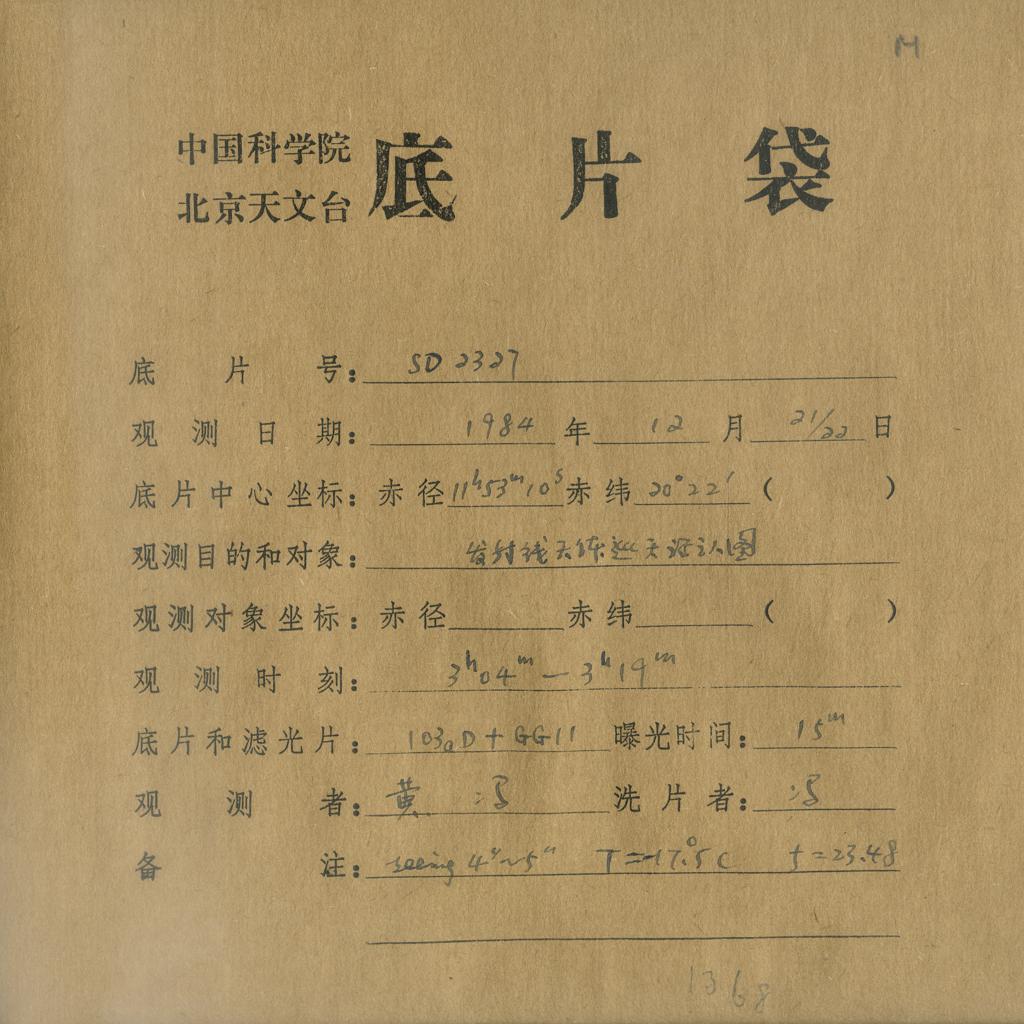 M
中国科学院
北京天文台
底片袋
底片号：SD 2327
观测日期：1984年12月21/22日
底片中心坐标：赤径11h53m10s赤纬20°22′（ ）
观测目的和对象：发射线天体巡天证认图
观测对象坐标：赤径 赤纬 （ ）
观测时刻：3h04m—3h19m
底片和滤光片：103aD+GG11 曝光时间：15m
观测者：黄 冯 洗片者：冯
备注：seeing 4″~5″ T=-17.5°C f=23.48
1368